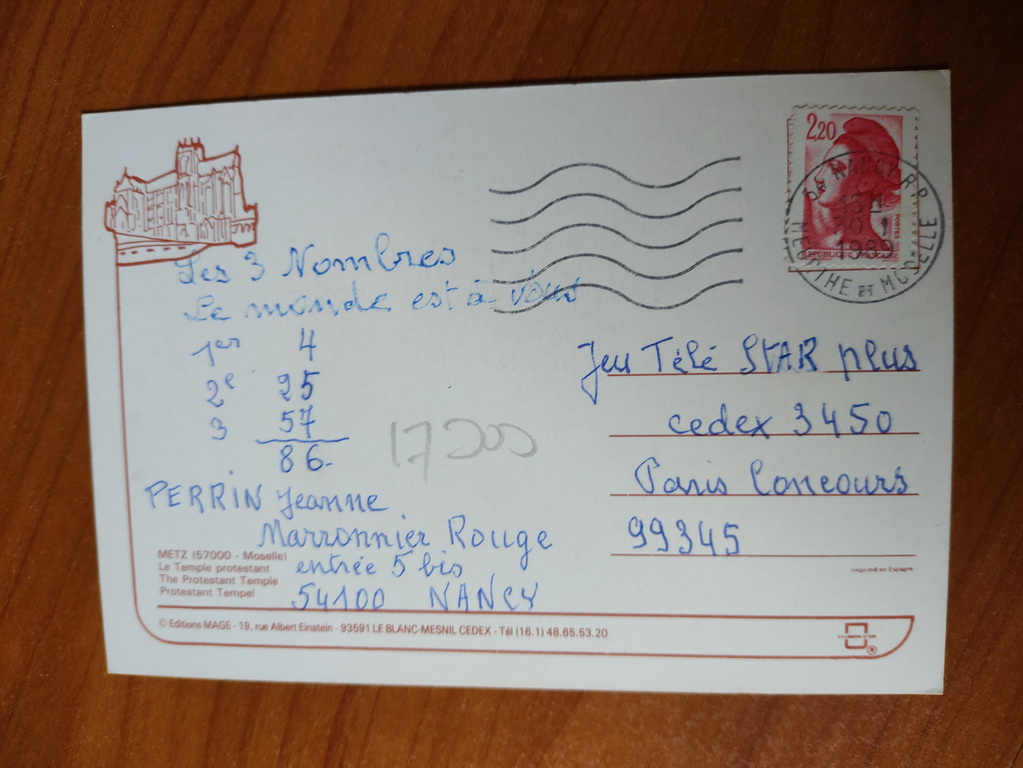 2,20
POSTES
REPUBLIQUE FRANCAISE
NANCY R.P
1989
MEURTHE ET MOSELLE
Les 3 Nombres
Le monde est à vous
1er 4
2e 25
3 57
86-
17200
PERRIN Jeanne
Marronnier Rouge
entrée 5 bis
54100 NANCY
Jeu Télé STAR plus
cedex 3450
Paris Concours
99345
METZ (57000 - Moselle)
Le Temple protestant
The Protestant Temple
Protestant Tempel
Imprimé en Espagne
© Editions MAGE - 19, rue Albert Einstein - 93591 LE BLANC-MESNIL CEDEX - Tél (16.1) 48.65.53.20
®